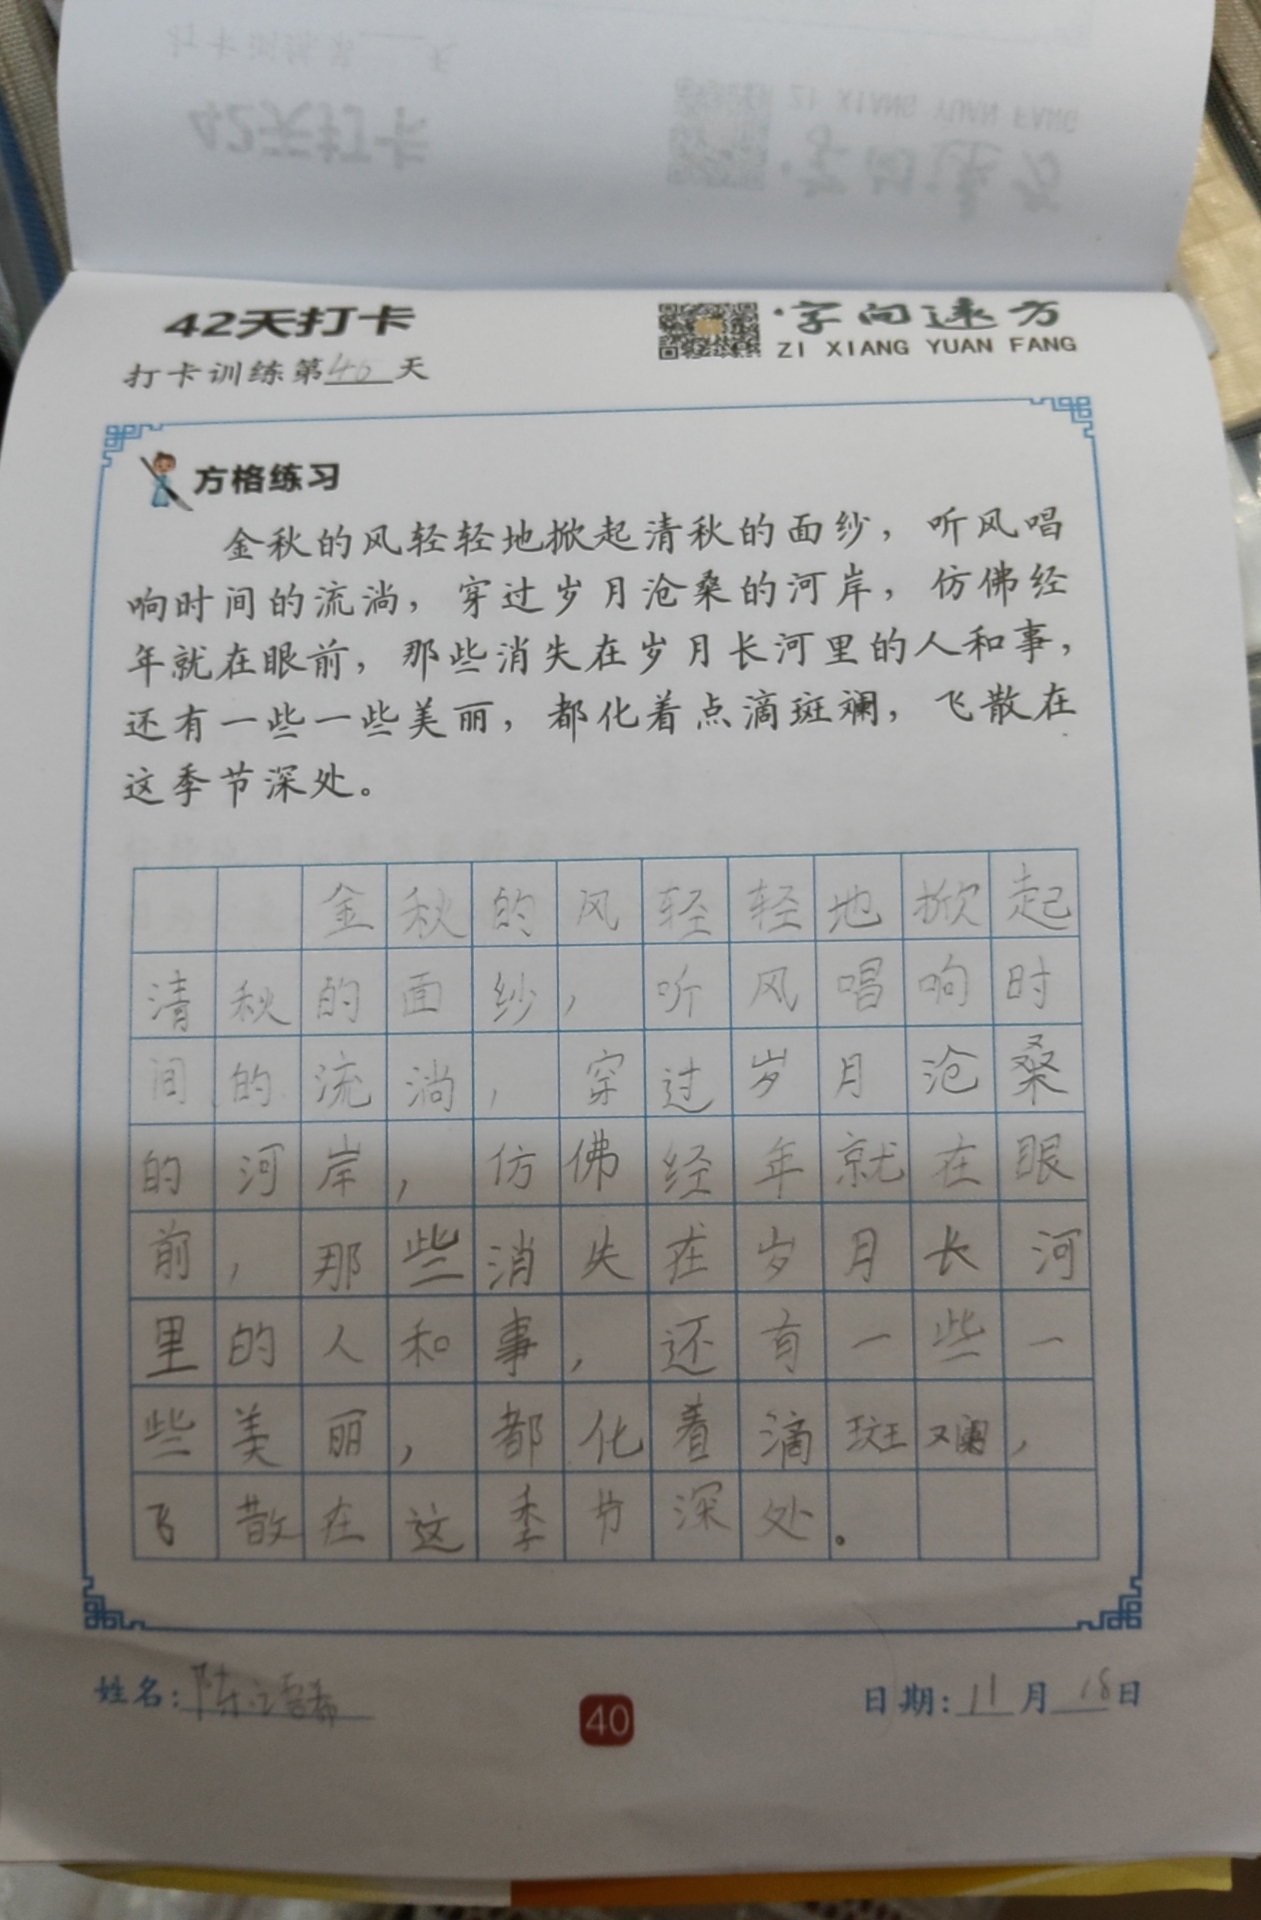 42天打卡
字向远方
ZI XIANG YUAN FANG
打卡训练第40天
方格练习
金秋的风轻轻地掀起清秋的面纱，听风唱
响时间的流淌，穿过岁月沧桑的河岸，仿佛经
年就在眼前，那些消失在岁月长河里的人和事，
还有一些一些美丽，都化着点滴斑斓，飞散在
这季节深处。
金秋的风轻轻地掀起
清秋的面纱，听风唱响时
间的流淌，穿过岁月沧桑
的河岸，仿佛经年就在眼
前，那些消失在岁月长河
里的人和事，还有一些一
些美丽，都化着滴斑斓，
飞散在这季节深处。
姓名：陈
40
日期：11月18日